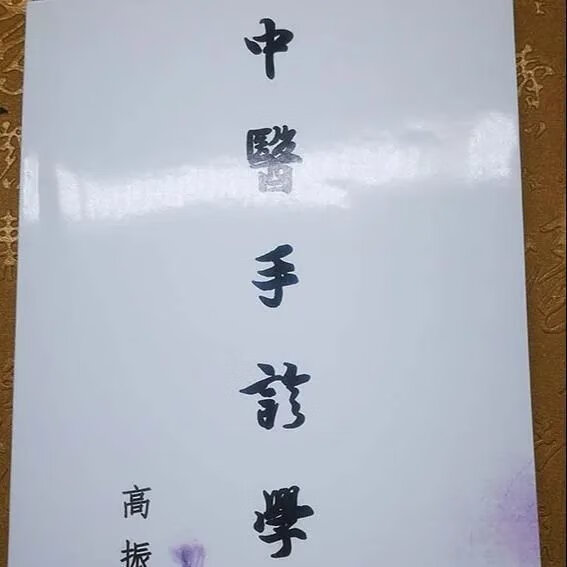 中醫手診學
高振